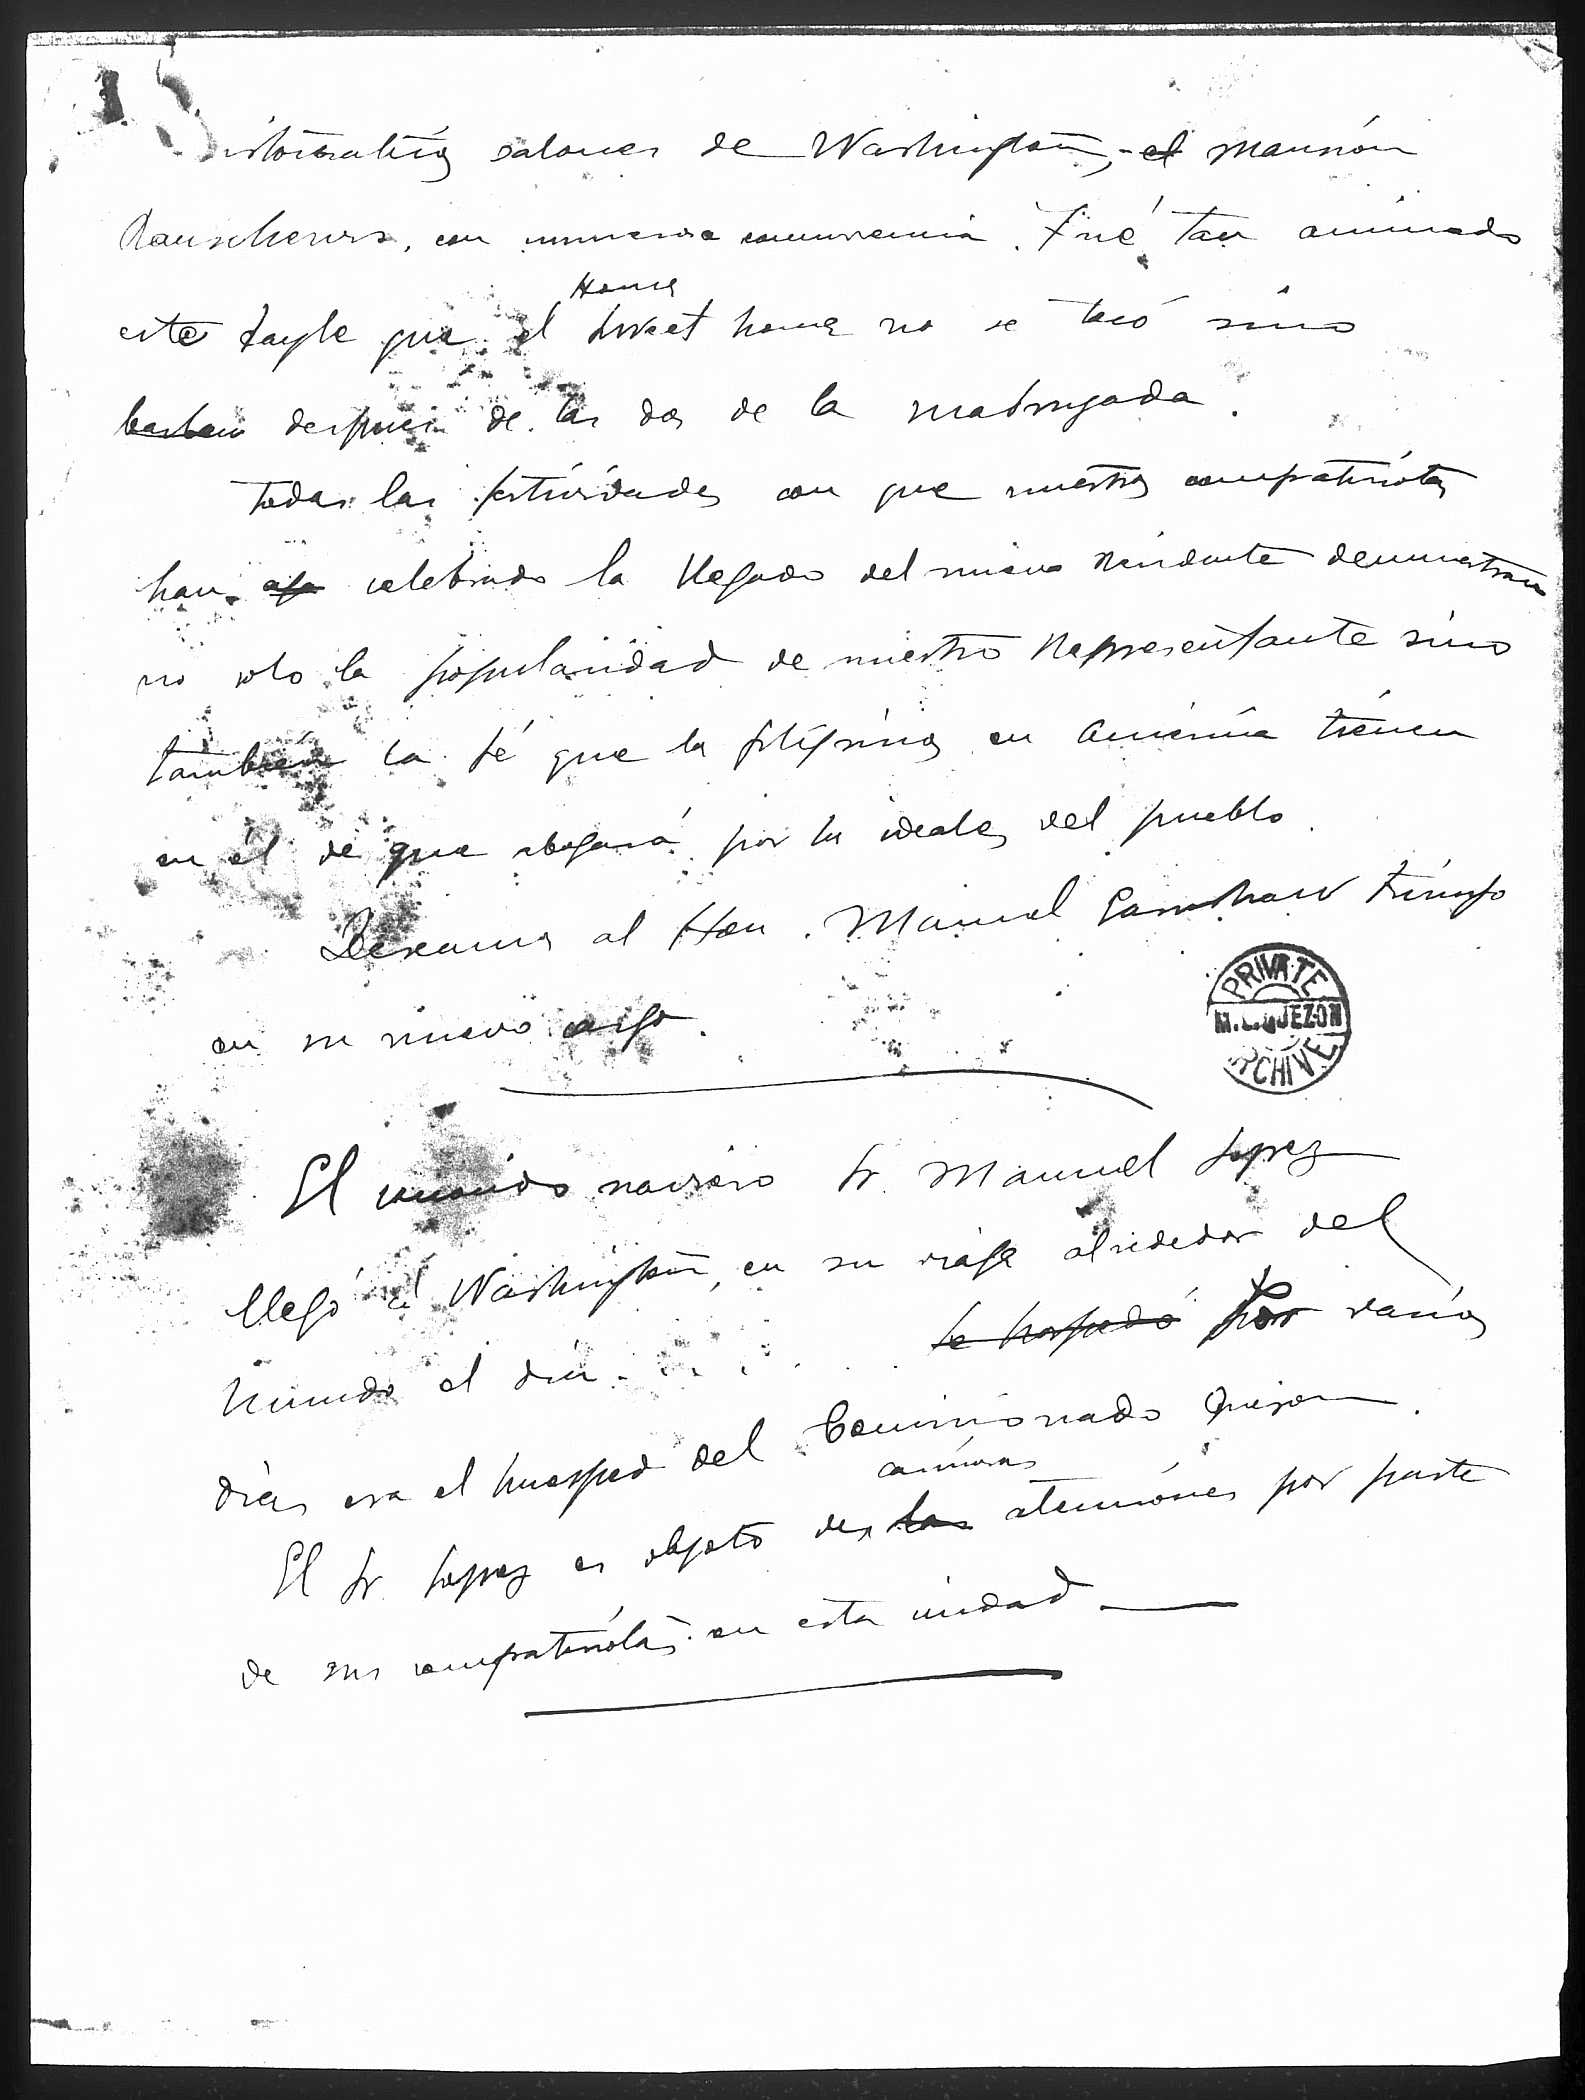 aristocráticos salones de Washington, el Mansión
Rauschers, con numerosa concurrencia. Fué tan animado
este bayle que el Home Sweet home no se tocó sino
hasta despues de las dos de la madrugada.
Todas las festividades con que nuestros compatriotas
han celebrado la llegada del nuevo Residente demuestran
no solo la popularidad de nuestro Representante sino
también la fé que los filipinos en America tienen
en él de que abogará por los ideales del pueblo.
Deseamos al Hon. Manuel Earnshaw triunfo
en su nuevo cargo.
PRIVATE
M.L. QUEZON
ARCHIVE
El conocido naviero Sr. Manuel Lopez
llegó á Washington, en su viaje alrededor del
mundo el dia . . . . . se hospedó Por varios
dias era el huesped del Comisionado Quezon.
El Sr. Lopez es objeto de las cariñosas atenciones por parte
de sus compatriotas en esta ciudad